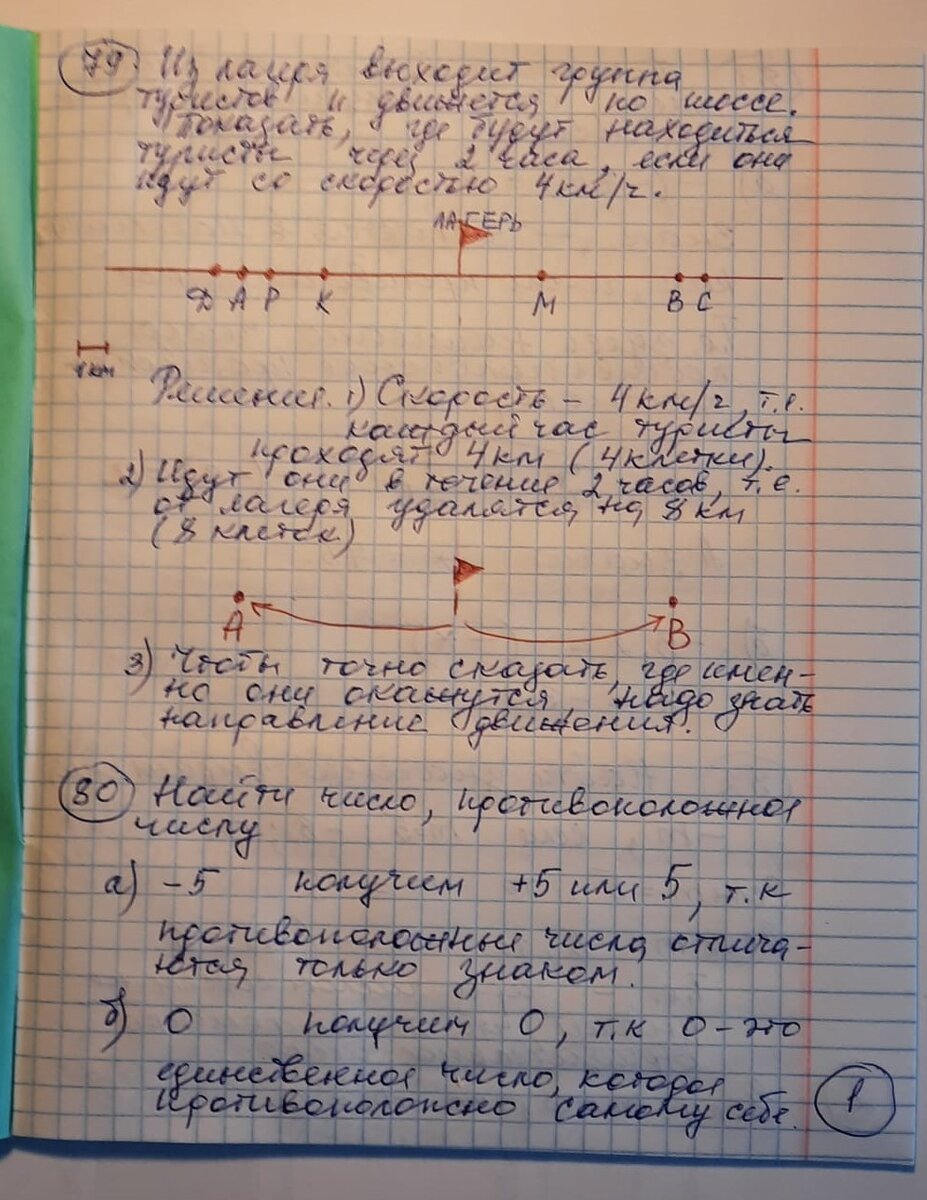 79 Из лагеря выходит группа
туристов и движется по шоссе.
Показать, где будут находиться
туристы через 2 часа, если они
идут со скоростью 4 км/ч.
ЛАГЕРЬ
Д А Р К М В С
1 км
Решение. 1) Скорость – 4 км/ч, т.е.
каждый час туристы
проходят 4 км (4 клетки).
2) Идут они в течение 2 часов, т.е.
от лагеря удалятся на 8 км
(8 клеток)
А В
3) Чтобы точно сказать, где имен-
но они окажутся, надо знать
направление движения.
80 Найти число, противоположное
числу
а) -5 получим +5 или 5, т.к
противоположные числа отлича-
ются только знаком.
б) 0 получим 0, т.к 0 – это
единственное число, которое
противоположно самому себе.
1